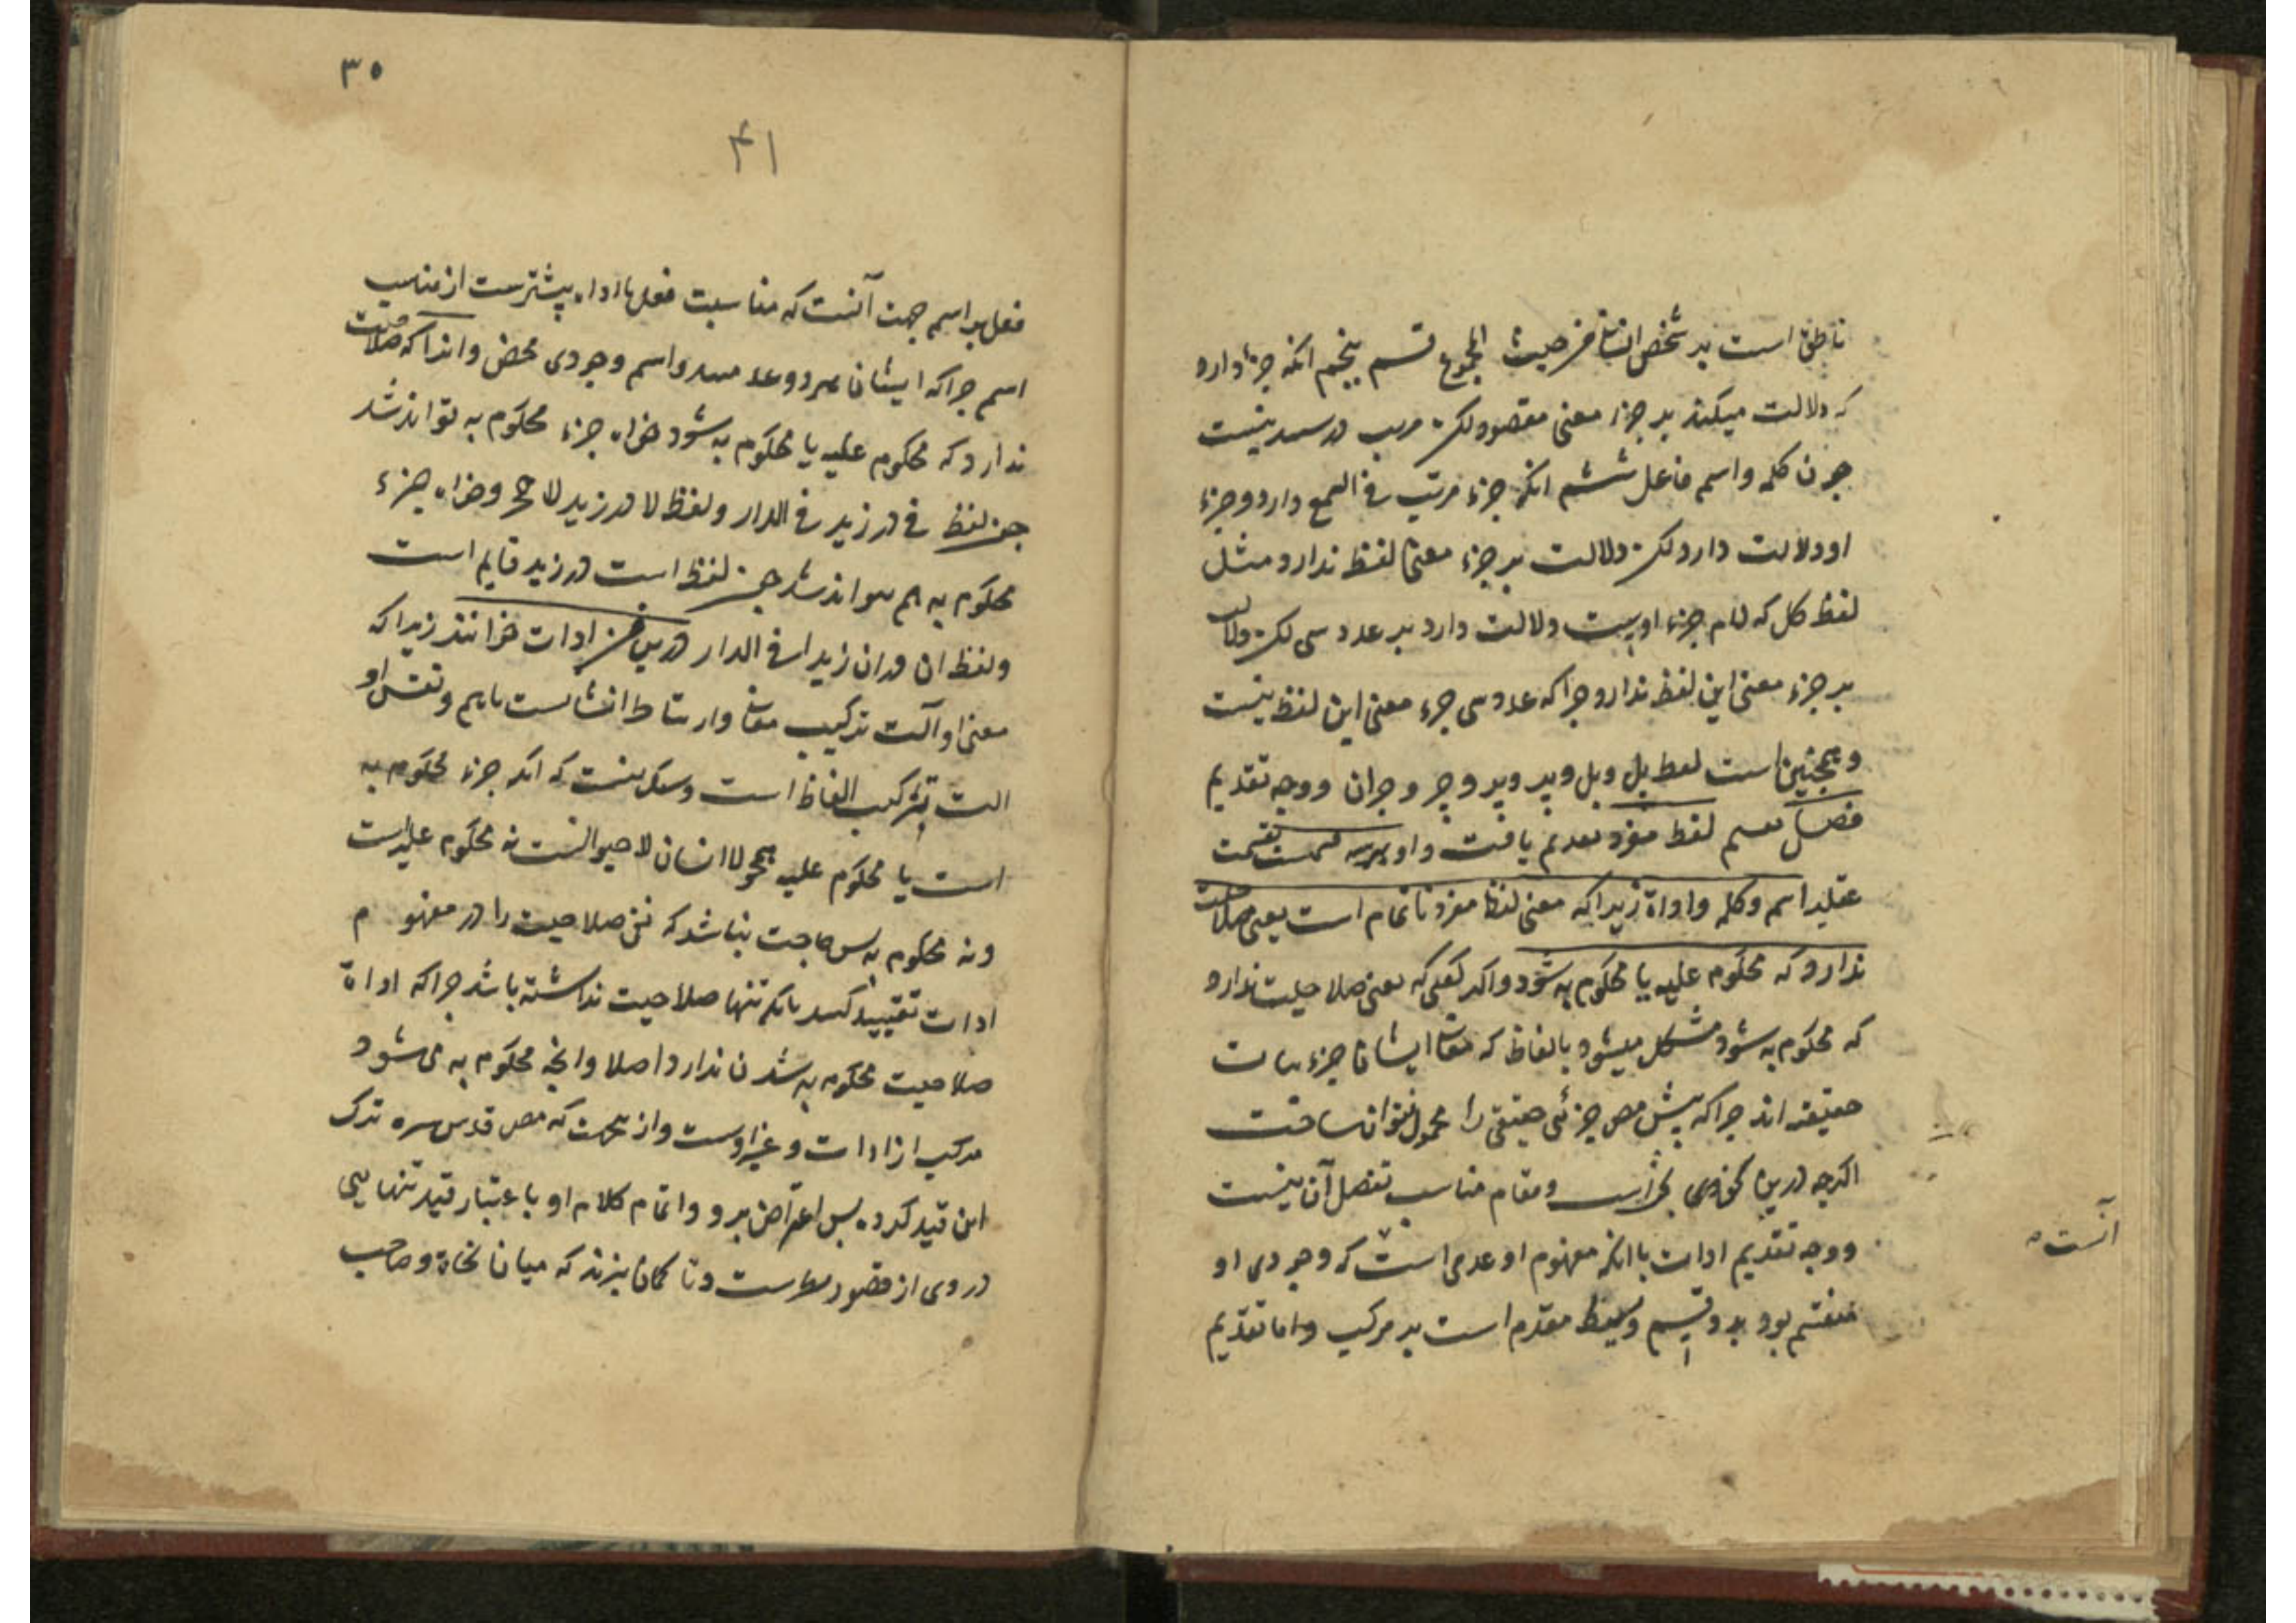 ناطق است بر شخص انسانی من حیث المجموع قسم پنجم انکه جزء دارد
که دلالت میکند بر جزء معنی مقصود لکن مرتب در سمع نیست
چون کلمه و اسم فاعل ششم انکه جزء مرتب فی السمع دارد و جزء
او دلالت دارد لکن دلالت بر جزء معنی لفظ ندارد مثل
لفظ کل که لام جزء اوست دلالت دارد بر عدد سی لکن دلالت
بر جزء معنی این لفظ ندارد چرا که عدد سی جزء معنی این لفظ نیست
و همچنین است لفظ بل و وجه تقدیم
فصل تقسیم لفظ مفرد تقدیم یافت و او بر سه قسمست بقسمت
عقلیه اسم و کلمه و اداة زیرا که معنی لفظ مفرد ناتمام است یعنی صلاحیت
ندارد که محکوم علیه یا محکوم به شود و اکر کفتی که یعنی صلاحیت ندارد
که محکوم به شود مشکل میشود بالفاظی که معانی ایشان جزئیات
حقیقه اند چرا که پیش مص جزئی حقیقی را محمول نتوان ساخت
اکرچه درین و مقام مناسب تفصل آن نیست
و وجه تقدیم ادات با انکه مفهوم او عدمی است که وجودی او
منقسم بود بدو قسم و بسیط مقدم است بر مرکب و اما تقدیم
آنست
۳۵
۴۱
فعل بر اسم جهت آنست که مناسبت فعل با اداه پیشترست از مناسبت
اسم چرا که ایشان هر دو عدمیند و اسم وجودی محض و انرا که صلاحیت
ندارد که محکوم علیه یا محکوم به شود خواه جزء محکوم به تواند شد
چون لفظ فی در زید فی الدار و لفظ لا در زید لا حجر و خواه جزء
محکوم به هم نتواند شد چون لفظ است در زید قایم است
و لفظ ان در ان زیدا فی الدار درین فن ادات خوانند زیرا که
معنی او آلت ترکیب معانی و ارتباط انشانست باهم و نفس او
الت ترکیب الفاظ است و شک نیست که انکه جزء محکوم به
است یا محکوم علیه همچو لا انسان لا حیوانست نه محکوم علیه است
و نه محکوم به پس حاجت نباشد که نفی صلاحیت را در مفهوم
ادات تقیید کنند بانکه تنها صلاحیت نداشته باشد چرا که اداة
صلاحیت محکوم به شدن ندارد اصلا و انچه محکوم به می شود
مرکب از ادات و غیر اوست و از نجهت که مص قدس سره ترک
این قید کرده پس اعتراض برو و اتمام کلام او با عتبار قید تنهایی
در وی از قصور معراست و تا کمان نبرند که میان نحاة و صاحب